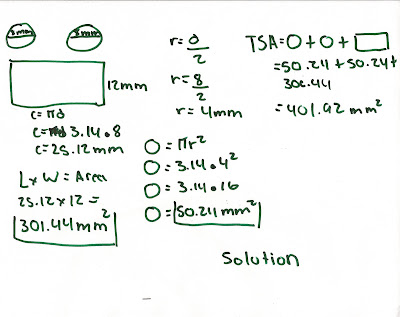 8mm 8mm
12mm
C=πd
C=πd 3.14•8
C=25.12mm
L×W=Area
25.12×12=
301.44mm²
r=D/2
r=8/2
r=4mm
O=πr²
O=3.14•4²
O=3.14•16
O=50.24mm²
TSA=O+O+▭
=50.24+50.24+
301.44
=401.92 mm²
Solution